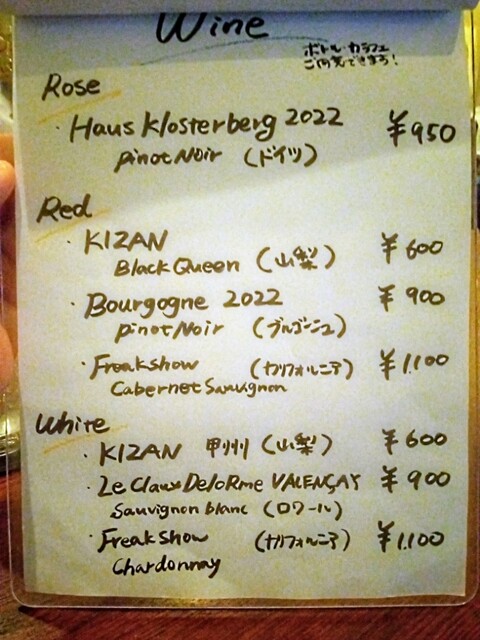 Wine
ボトル・カラフェ
ご用意できます!
Rose
・Haus Klosterberg 2022 ¥950
Pinot Noir (ドイツ)
Red
・KIZAN ¥600
Black Queen (山梨)
・Bourgogne 2022 ¥900
Pinot Noir (ブルゴーニュ)
・Freakshow (カリフォルニア) ¥1.100
Cabernet Sauvignon
White
・KIZAN 甲州 (山梨) ¥600
・Le Claux Delorme VALENÇAY ¥900
Sauvignon blanc (ロワール)
・Freakshow (カリフォルニア) ¥1.100
Chardonnay